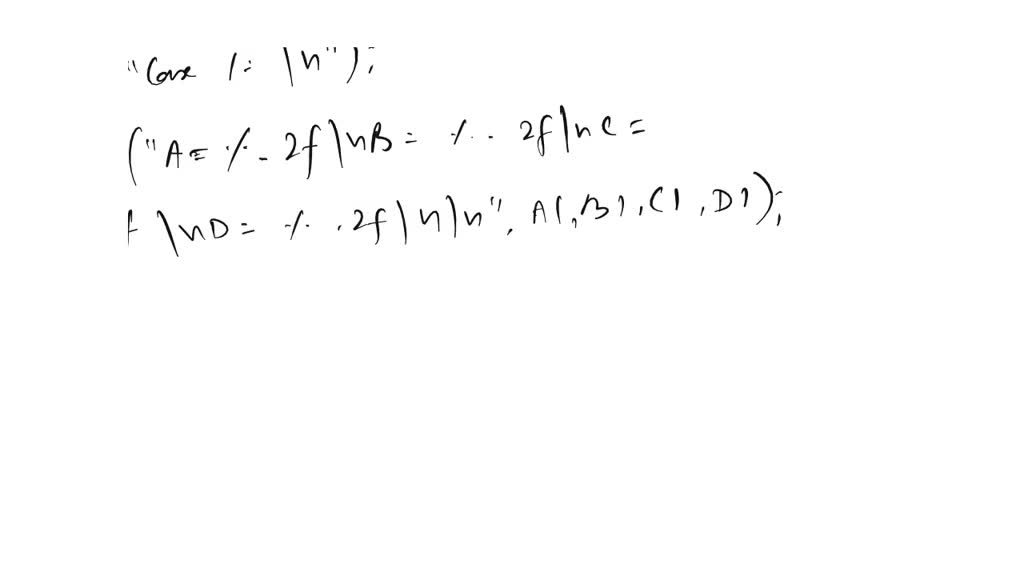 "Case 1: \n");
("A= %.2f\nB= %..2f\nC=
f \nD= %.2f\n\n", A1,B1,C1,D1);